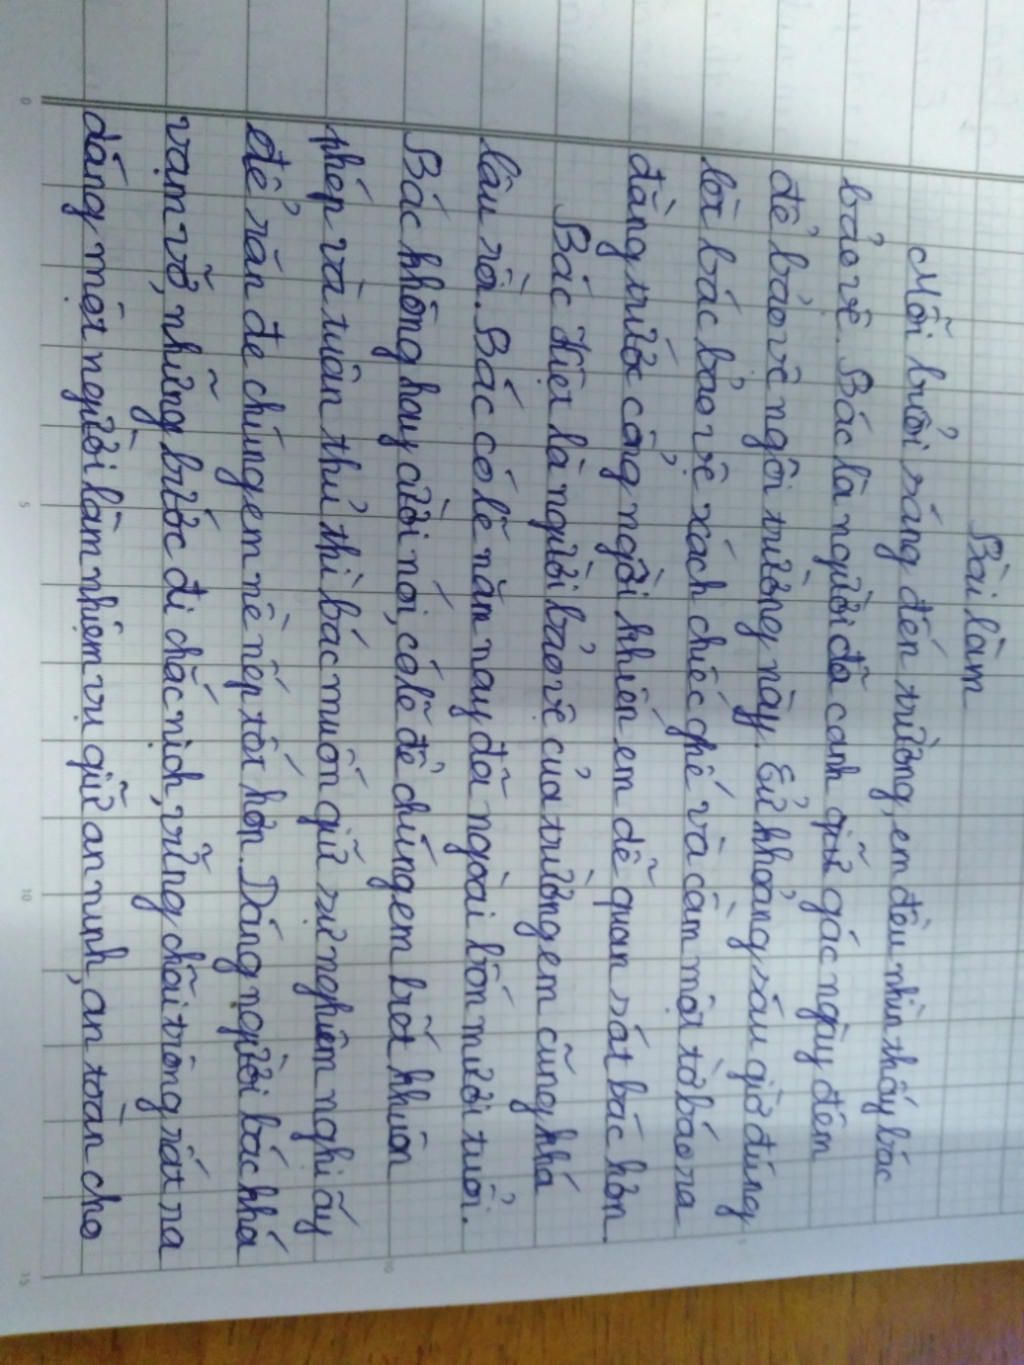 Bài làm
Mỗi buổi sáng đến trường, em đều nhìn thấy bác
bảo vệ. Bác là người đã canh giữ gác ngày đêm
để bảo vệ ngôi trường này. Cứ khoảng sáu giờ đúng
lời bác bảo vệ xách chiếc ghế và cầm một tờ báo ra
đằng trước cổng ngồi khiến em dễ quan sát bác hơn.
Bác Việt là người bảo vệ của trường em cũng khá
lâu rồi. Bác có lẽ năm nay đã ngoài bốn mươi tuổi.
Bác không hay cười nói, có lẽ để chúng em bớt khuôn
phép và tuân thủ thì bác muốn giữ sự nghiêm nghị ấy
để răn đe chúng em nề nếp tốt hơn. Dáng người bác khá
vạm vỡ, những bước đi chắc nịch, vững chãi trông rất ra
dáng một người làm nhiệm vụ giữ an ninh, an toàn cho